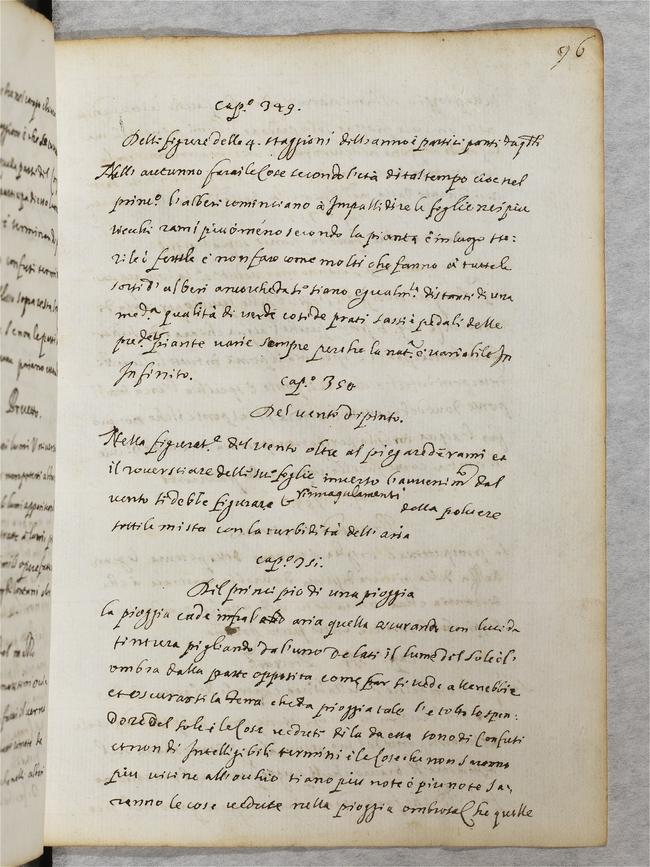 96
Cap.º 349.
Delle figure delle 4. staggioni dell'anno è partici ponti da q.lli
Nell'autunno farai le cose secondo l'età di tal tempo cioe nel
princ.º l'alberi cominciano à Impallidire le foglie nei piu
vecchi rami più ò meno secondo la pianta è in luogo ste:
rile ò fertile e non fare come molti che fanno à tutte le
sorti d'alberi ancorche da se siano egualm.te distanti di una
med.a qualità di verde cosi de prati sassi è pedali delle
pred.te piante varie sempre perche la nat.a è variabile In
Infinito.
cap.º 350
Del vento dipinto.
Nella figurat.e del vento oltre al piegare de rami et
il roversciare delle sue foglie inverso l'avenim.to dal
vento si debbe figurare li rinnugulamenti della polvere
sottile mista con la turbidità dell'aria
cap.º 351.
Del principio di una pioggia
la pioggia cade infra l'aria quella oscurando con lucida
tintura pigliando dal'uno de lati il lume del sole è l'
ombra dalla parte opposita come si vede alle nebbie
et oscurarsi la terra che da pioggia tale l'è tolto lo splen:
dore del sole è le cose vedute di la da essa sono di confusi
et non di Intelligibili termini è le cose che non saranno
più vicine all'occhio siano piu note è piu note sa:
ranno le cose vedute nella pioggia ombrosa che quelle